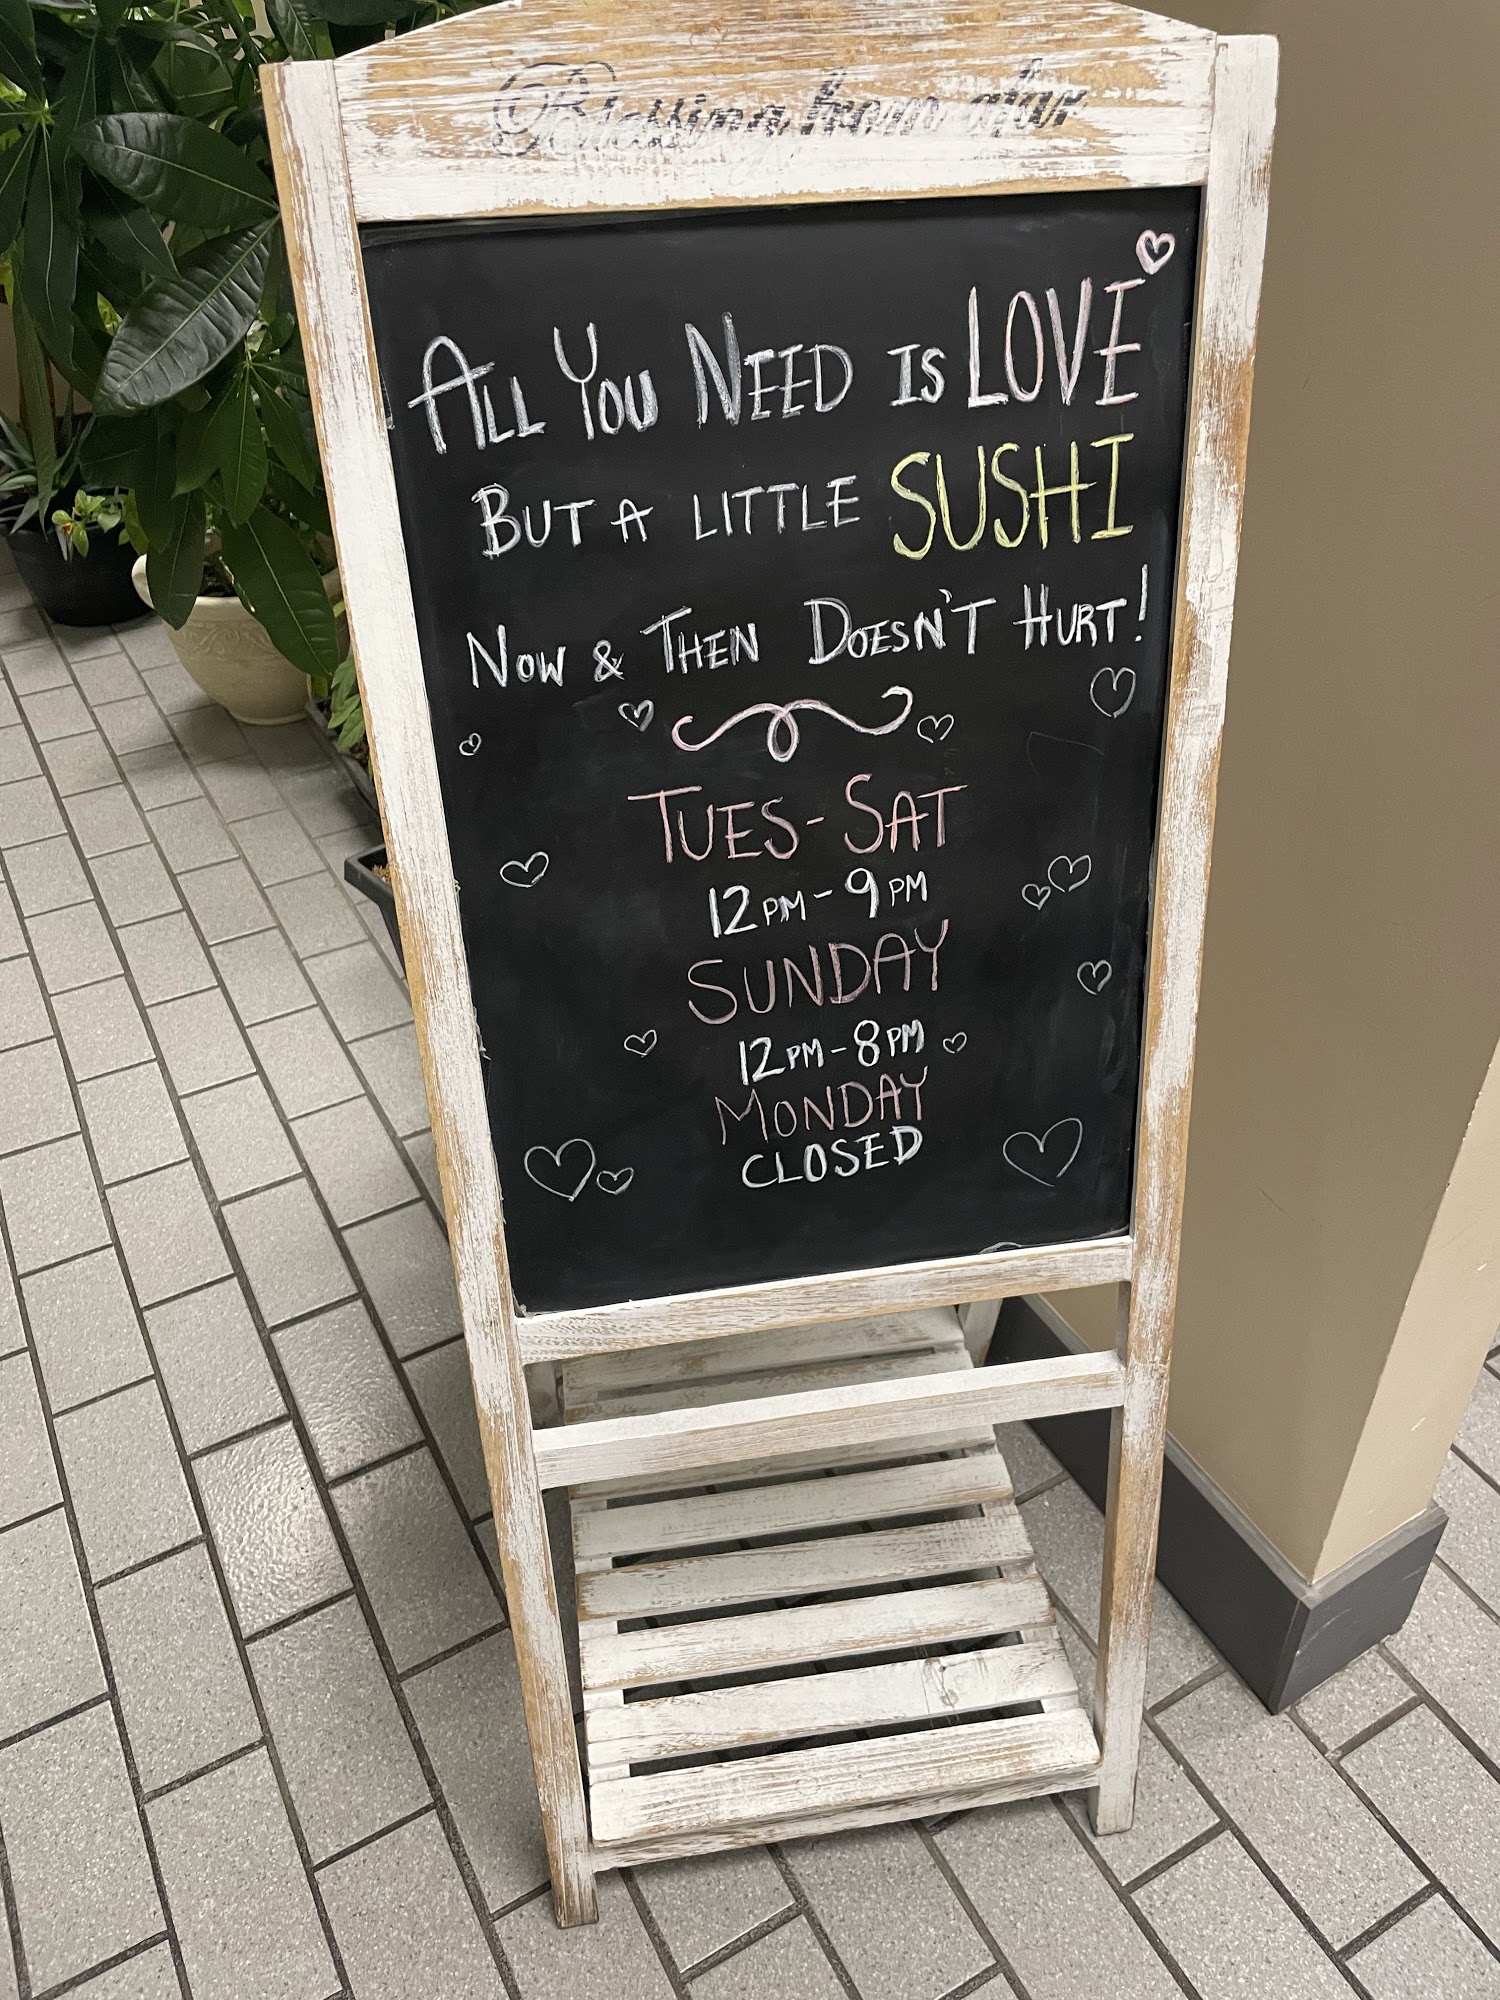 Blessing from afar
ALL YOU NEED IS LOVE
BUT A LITTLE SUSHI
NOW & THEN DOESN'T HURT!
TUES-SAT
12PM-9PM
SUNDAY
12PM-8PM
MONDAY
CLOSED